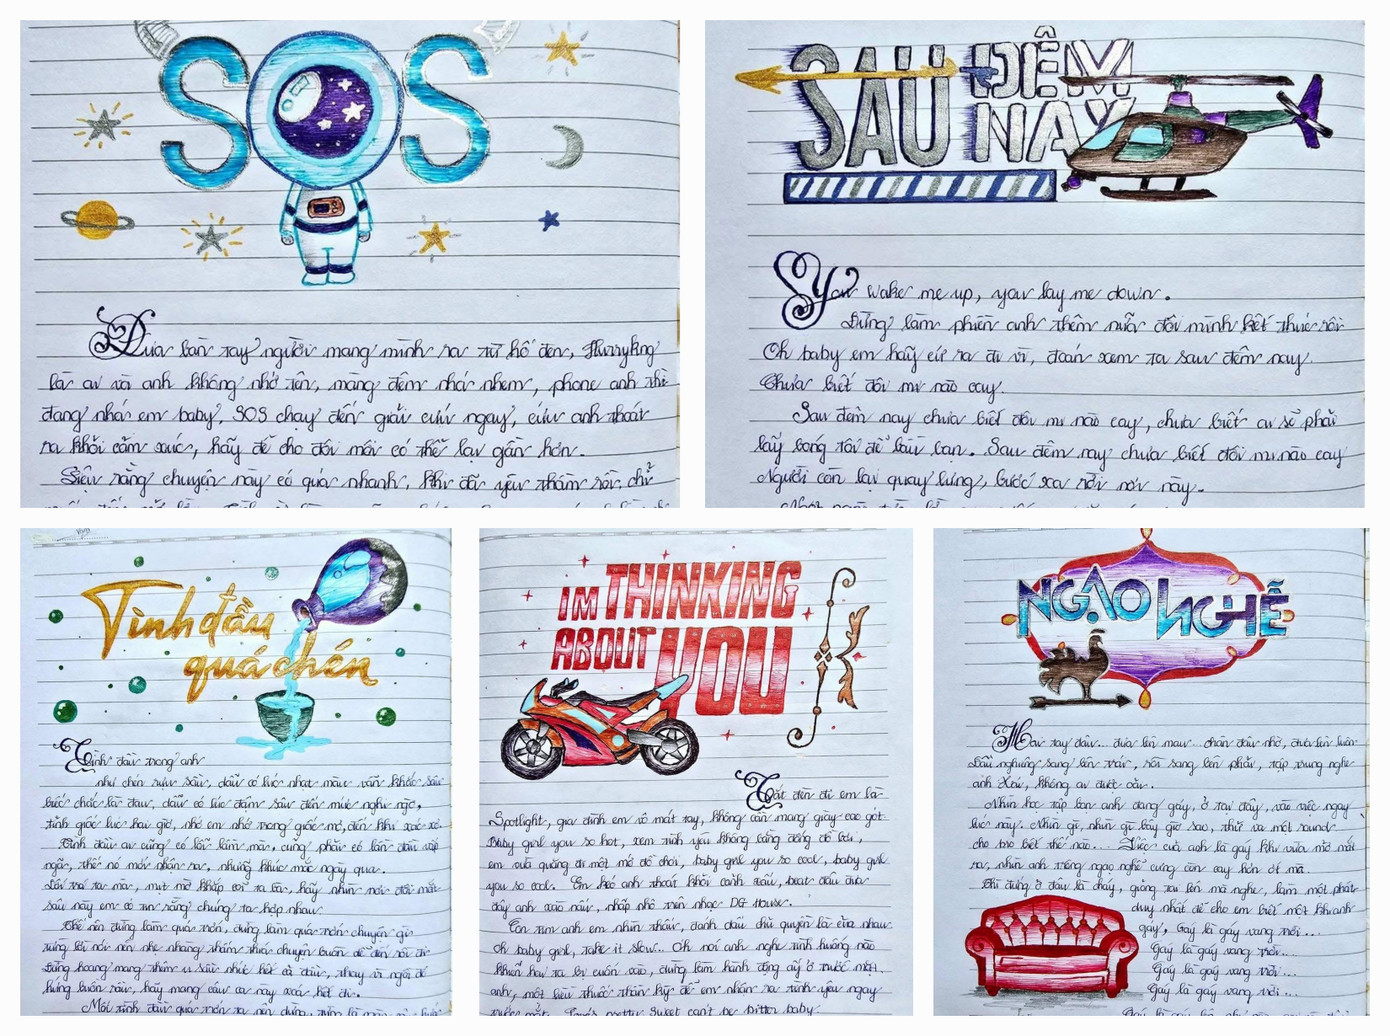 SOS
Đưa bàn tay người mang mình ra từ hố đen, Hurrykng
là ai và anh không nhớ tên, màng đêm nhá nhem, phone anh thì
đang nhá em baby, SOS chạy đến giải cứu ngay, cứu anh thoát
ra khỏi cảm xúc, hãy để cho đôi môi có thể lại gần hơn.
Siêu rằng chuyện này có quá nhanh, khi đã yêu thầm rồi, chỉ
SAU ĐÊM NAY
You wake me up, you lay me down.
Đừng làm phiền anh thêm nữa đôi mình kết thúc rồi
Oh baby em hãy cứ ra đi vì, đoán xem ta sau đêm nay.
Chưa biết đôi mi nào cay.
Sau đêm nay chưa biết đôi mi nào cay, chưa biết ai sẽ phải
lấy bóng tối để làm bạn. Sau đêm nay chưa biết đôi mi nào cay
Người còn lại quay lưng, bước xa rời nơi này.
Tình đầu quá chén
Tình đầu trong anh
như chén rượu sầu, dẫu có lúc nhạt màu vẫn khắc sâu
biết chắc là đau, dẫu có lúc đậm sâu đến mức nghi ngờ,
tỉnh giấc lúc hai giờ, nhớ em nhớ trong giấc mơ, đến khi xác xơ.
Tình đầu ai cũng có lỗi lầm mà, cũng phải có lần đầu vấp
ngã, thế nó mới nhận ra, những khúc mắc ngày qua.
sau này em có tin rằng chúng ta hợp nhau.
Thế nên đừng làm quá trớn, đừng làm quá trớn chuyện gì
Đừng hoang mang thêm u sầu nhấc hết cả đầu, thay vì ngồi để
hứng buồn rầu, hãy mang câu ca này xoá hết đi.
Mối tình đầu quá trớn ta nên dừng,
IM THINKING ABOUT YOU
Tắt đèn đi em là
Spotlight, gia đình em vỗ mát tay, không cần mang giày cao gót
Baby girl you so hot, xem tình yêu không bằng đẳng đồ lời,
em vứt quăng đi một mớ đồ chơi, baby girl you so cool, baby girl
you so cool. Em kéo anh thoát khỏi cảnh xấu, beat đầu đưa
đẩy anh vào náu, nhấp nhô trên nhạc DG House.
Còn tim anh em nhìn thấu, đánh dấu chủ quyền là của nhau.
Oh baby girl, take it slow... Oh nói anh nghe tình huống nào
khiến hai ta bị cuốn vào, đừng làm hành động ấy ở trước mặt
anh, một liều thuốc thần kỳ để em nhận ra tình yêu ngay
trước mắt. Love's pretty sweet can't be bitter baby.
NGẠO NGHỄ
Hai tay đâu... đưa lên mau... chân đâu nhở, đưa lên luôn
Đầu nghiêng sang bên trái, rồi sang bên phải, tập trung nghe
anh Xái, không ai được cãi.
Nhìn học tập làn anh đang gáy, ở tại đây, vào việc ngay
lúc này. Nhìn gì, nhìn gì bây giờ sao, thử va một round
cho bỏ biết thế nào... Việc của anh là gáy khi vừa mở mắt
ra, nhìn anh trông ngạo nghễ cũng còn cay hơn ớt mà.
Khi đứng ở đâu là cháy, giỏng tai lên mà nghe, làm một phát
duy nhất để cho em biết một khi anh
gáy, Gáy là gáy vang trời...
Gáy là gáy vang trời...
Gáy là gáy vang trời...
Gáy là gáy vang trời...